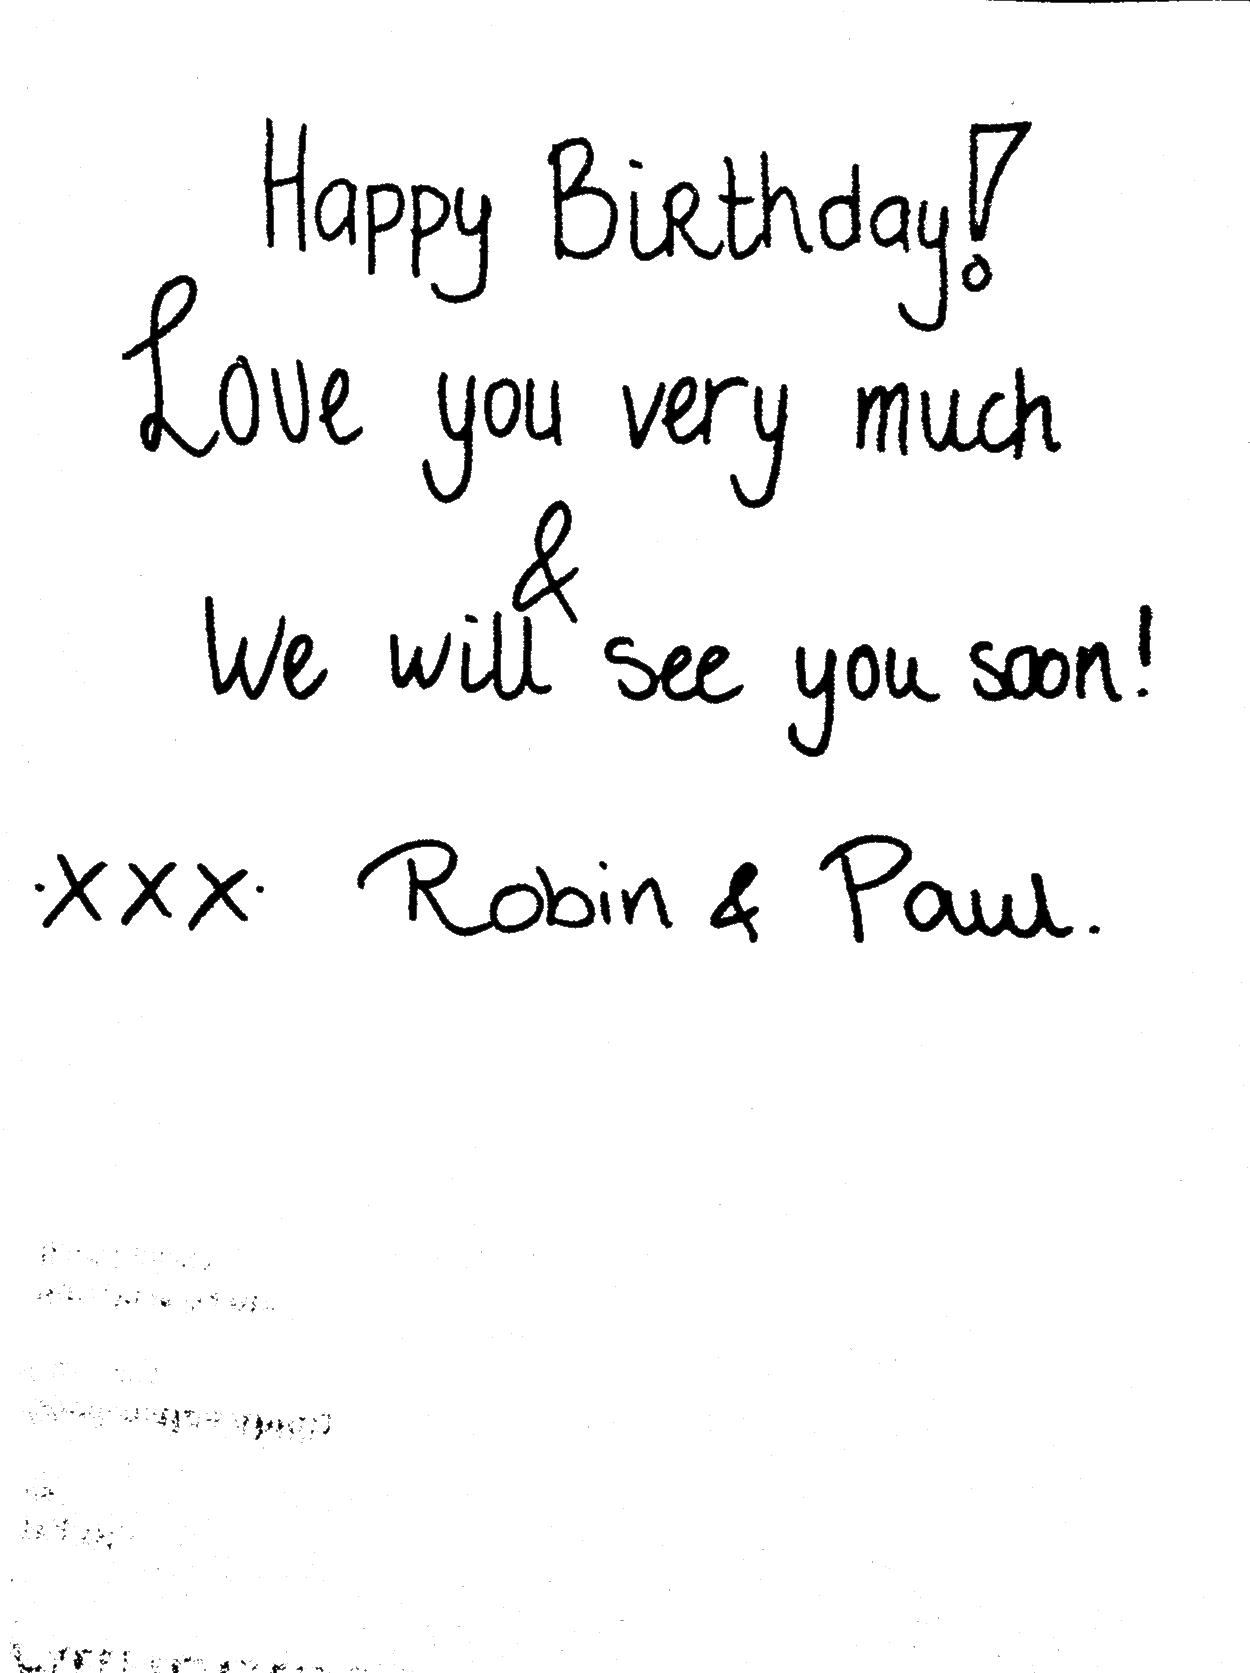 Happy Birthday!
Love you very much
&
We will see you soon!
.xxx. Robin & Paul.